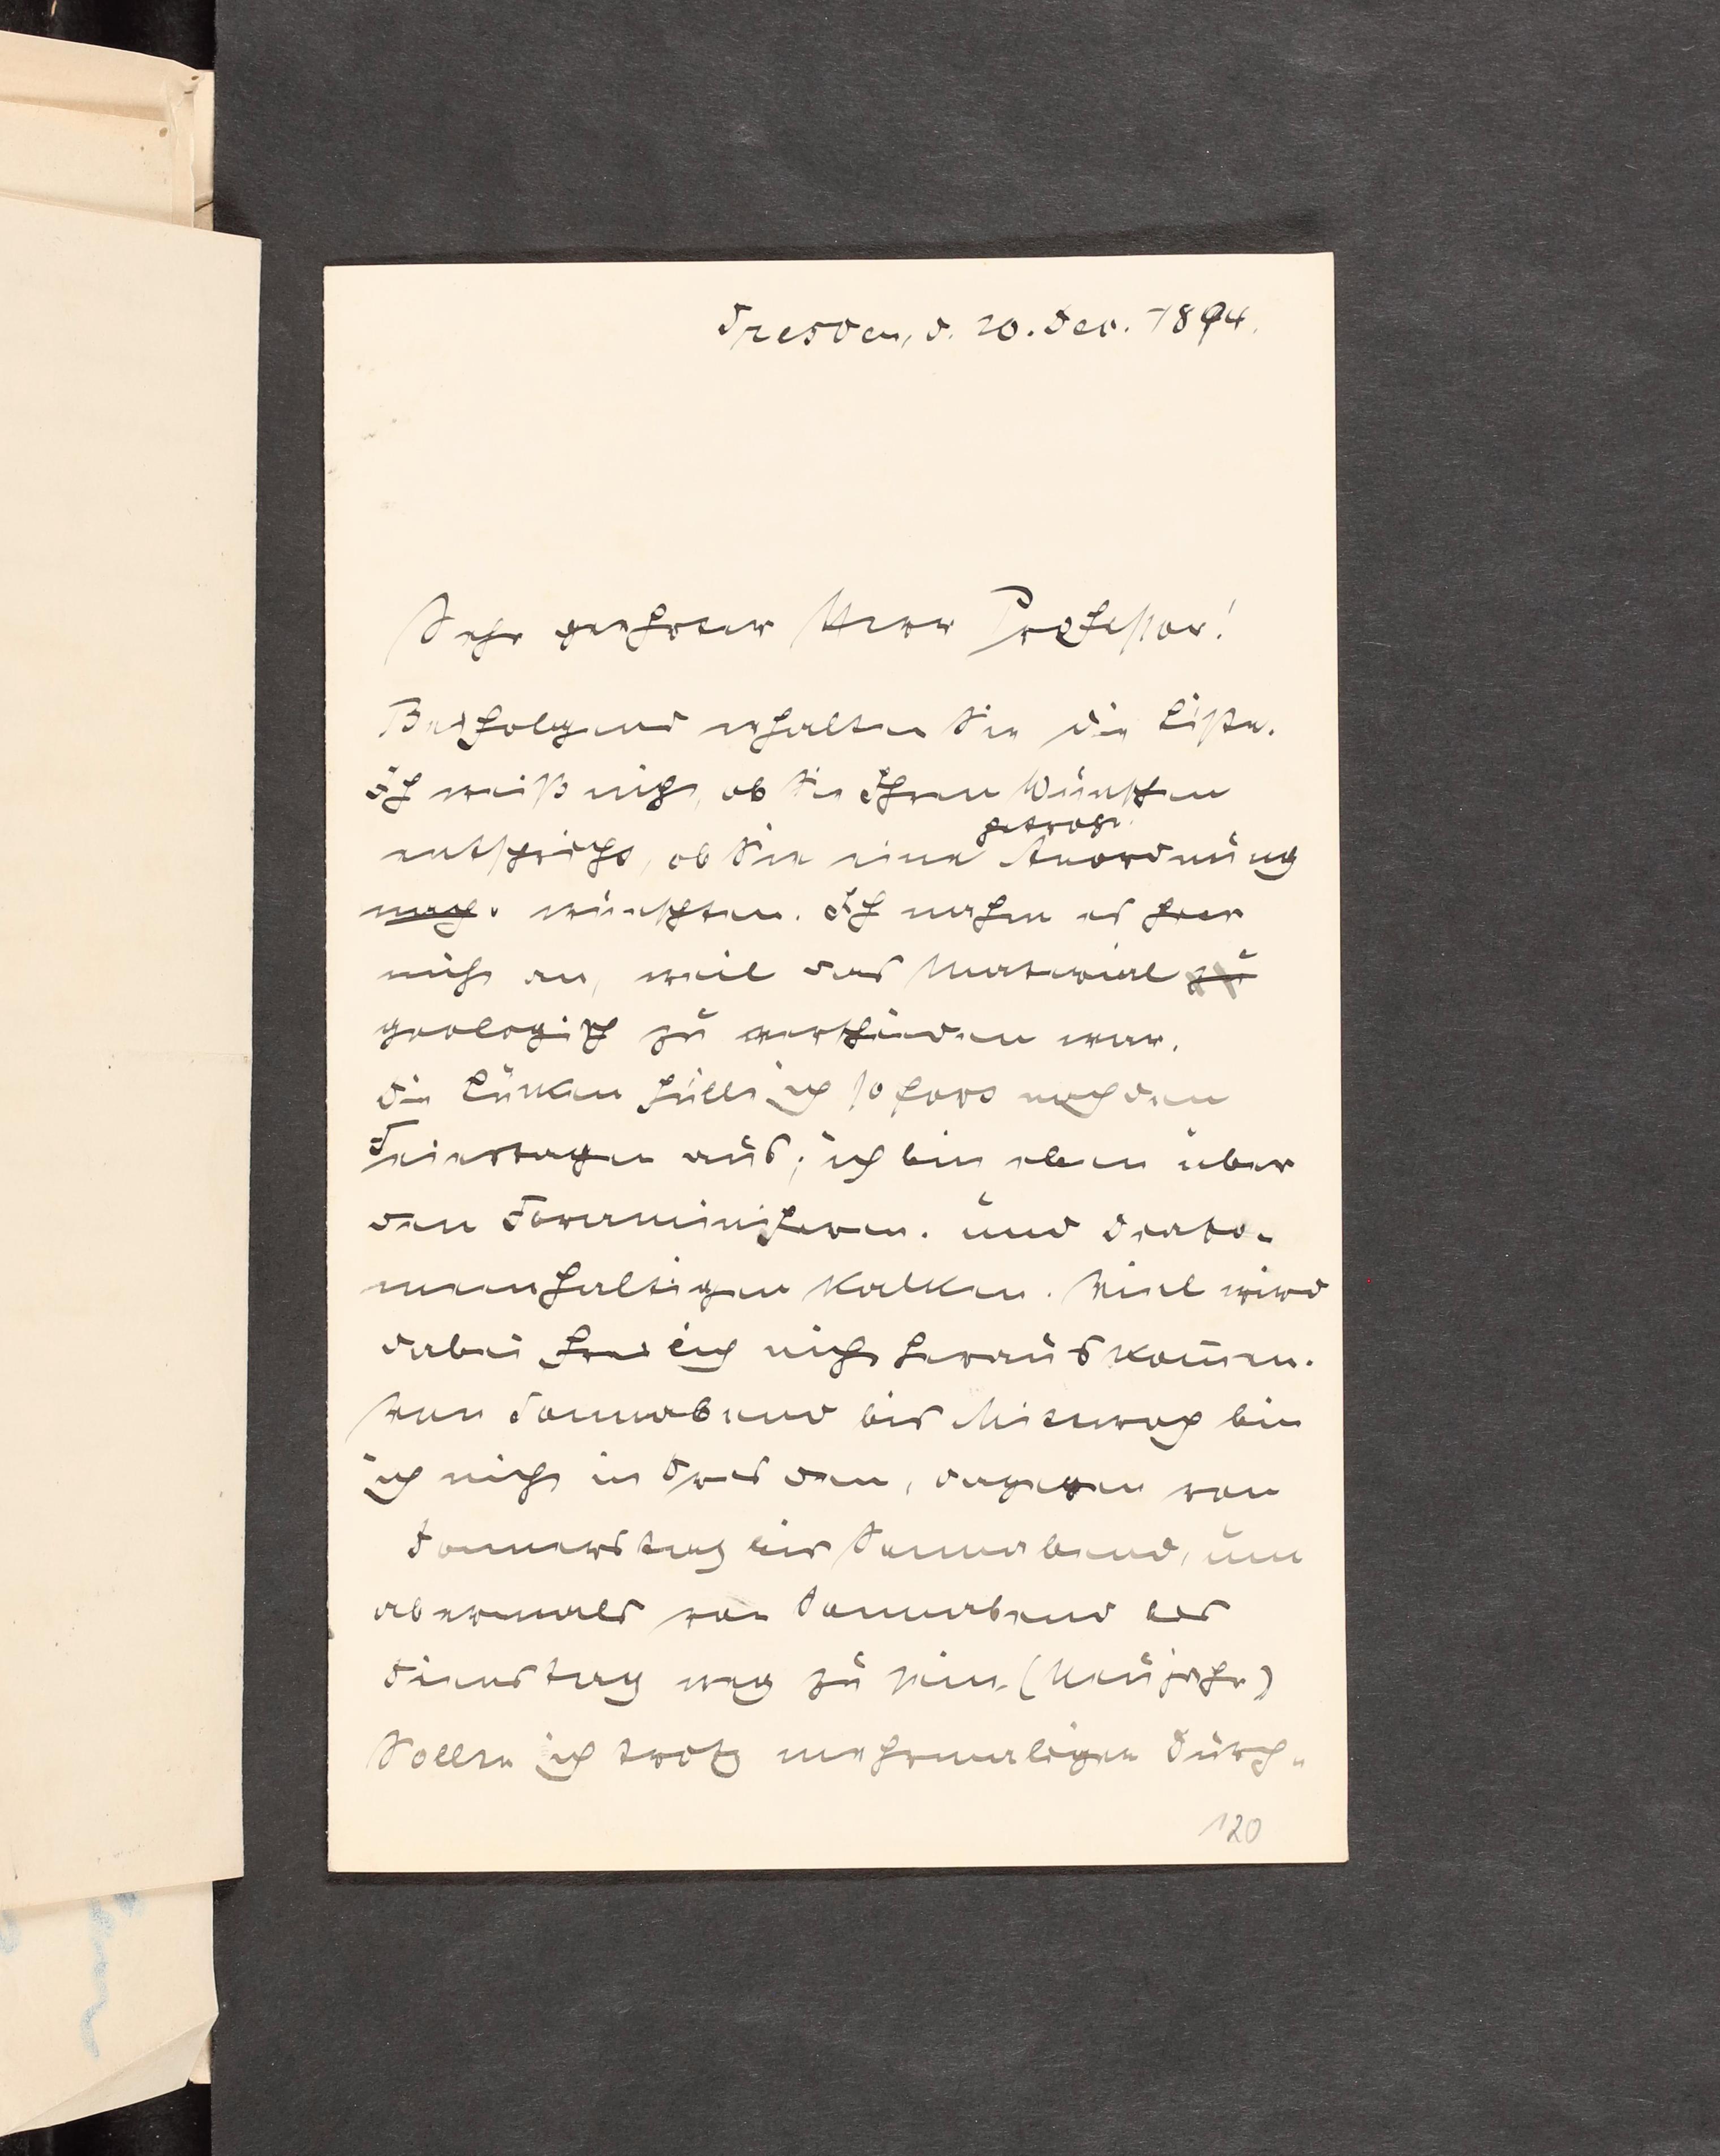 Dresden, d. 20. Dec. 1894.
Sehr geehrter Herr Professor!
Beifolgend erhalten Sie die Liste.
Ich weiß nicht, ob sie Ihren Wünschen
petrogr.
entspricht, ob Sie eine Anordnung
nach. wünschten. Ich nahm es hier
nicht an, weil das Material zu
geologisch zu verschieden war.
Die Lücken fülle ich sofort nach den
Feiertagen aus; ich bin eben über
den Foraminiferen- und Diato-
meenhaltigen Kalken. Viel wird
dabei freilich nicht herauskommen.
Von Sonnabend bis Mittwoch bin
ich nicht in Dresden, dagegen von
Donnerstag bis Sonnabend, um
abermals von Sonnabend bis
Dienstag weg zu sein. (Neujahr)
Sollte ich trotz mehrmaliger Durch-
120